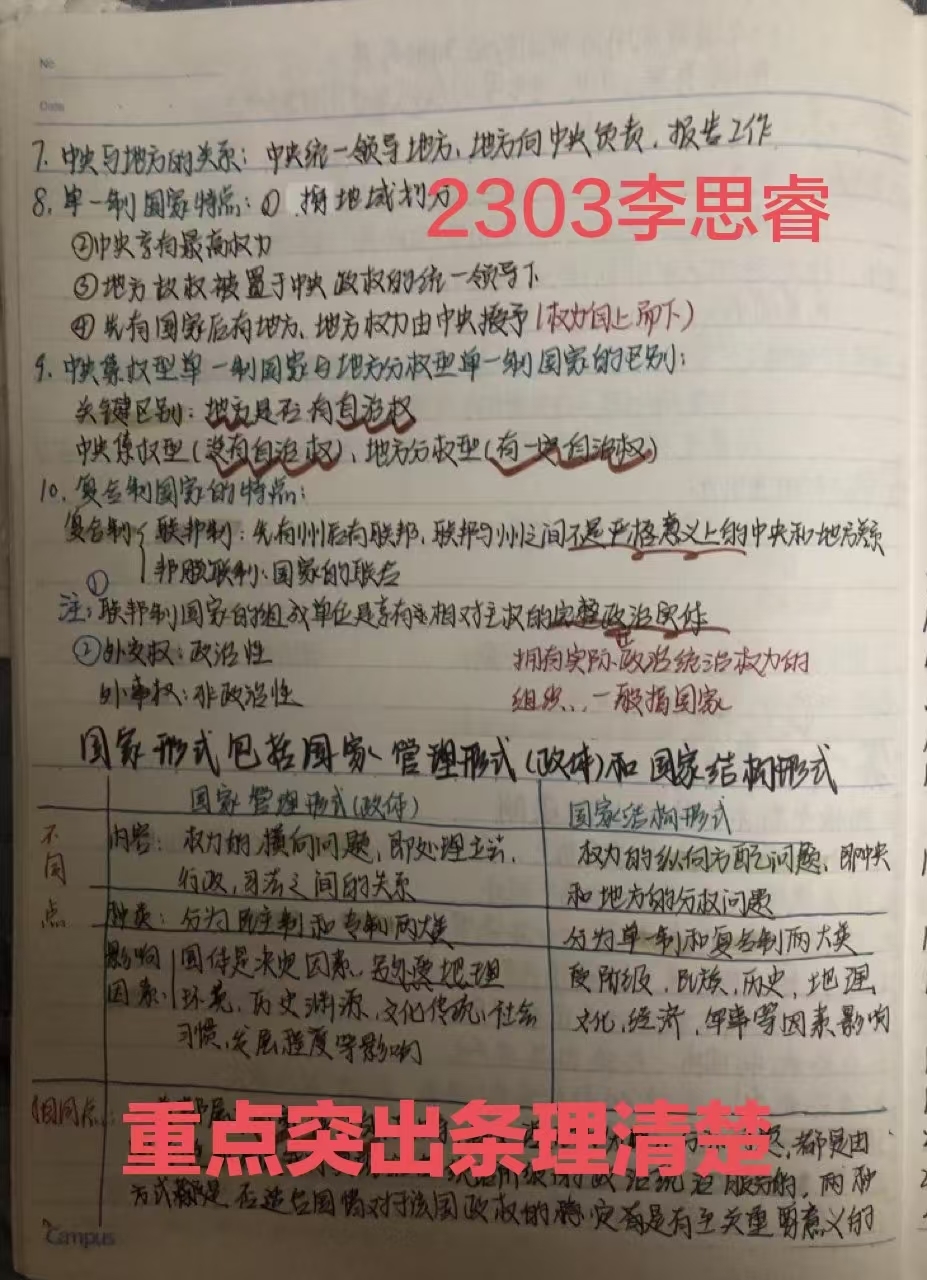 No
Date
7. 中央与地方的关系：中央统一领导地方、地方向中央负责，报告工作
8. 单一制国家特点：① 按地域划分
2303李思睿
②中央享有最高权力
③地方政权被置于中央政权的统一领导下
④先有国家后有地方、地方权力由中央授予（权力自上而下）
9. 中央集权型单一制国家与地方分权型单一制国家的区别：
关键区别：地方是否有自治权
中央集权型（没有自治权）、地方分权型（有一定自治权）
10. 复合制国家的特点：
复合制 联邦制：先有州后有联邦、联邦与州之间不是严格意义上的中央和地方关系
邦联制：国家的联合
①
注：联邦制国家的组成单位是享有相对主权的完整政治实体
②外交权：政治性 拥有实际政治统治权力的
外事权：非政治性 组织，一般指国家
国家形式包括国家管理形式（政体）和国家结构形式
国家管理形式（政体） 国家结构形式
不同点 内容：权力的横向问题，即处理立法、 权力的纵向分配问题，即中央
行政，司法之间的关系 和地方的分权问题
种类：分为民主制和专制两大类 分为单一制和复合制两大类
影响 国体是决定因素、还受地理 受阶级，民族，历史，地理
因素： 环境，历史渊源，文化传统、社会 文化，经济，军事等因素影响
习惯，发展程度等影响
相同点：
重点突出条理清楚
都是由
政治统治服务的，两种
方式都是，否适合国情对于该国政权的稳定都是有至关重要意义的
Campus